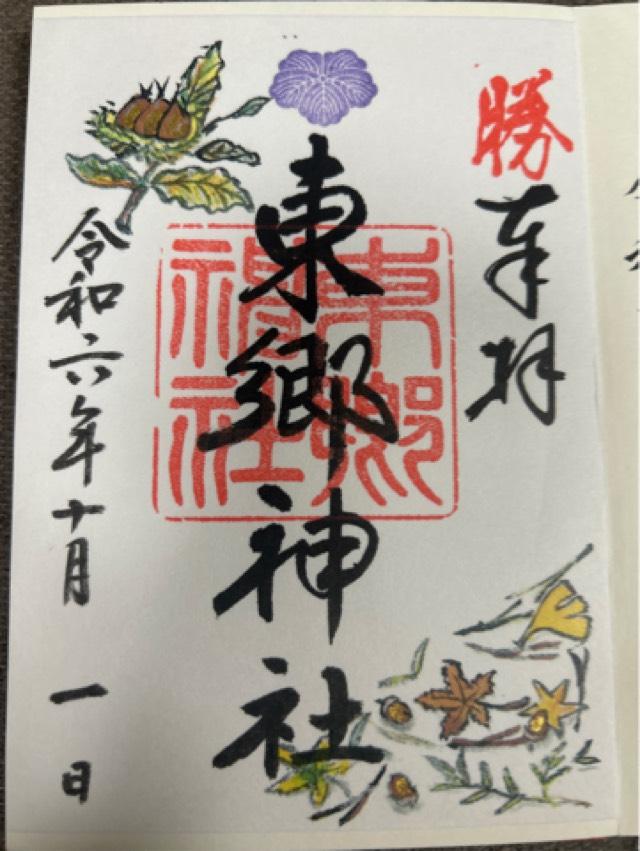 勝
奉拝
東郷神社
東郷神社
令和六年十月一日